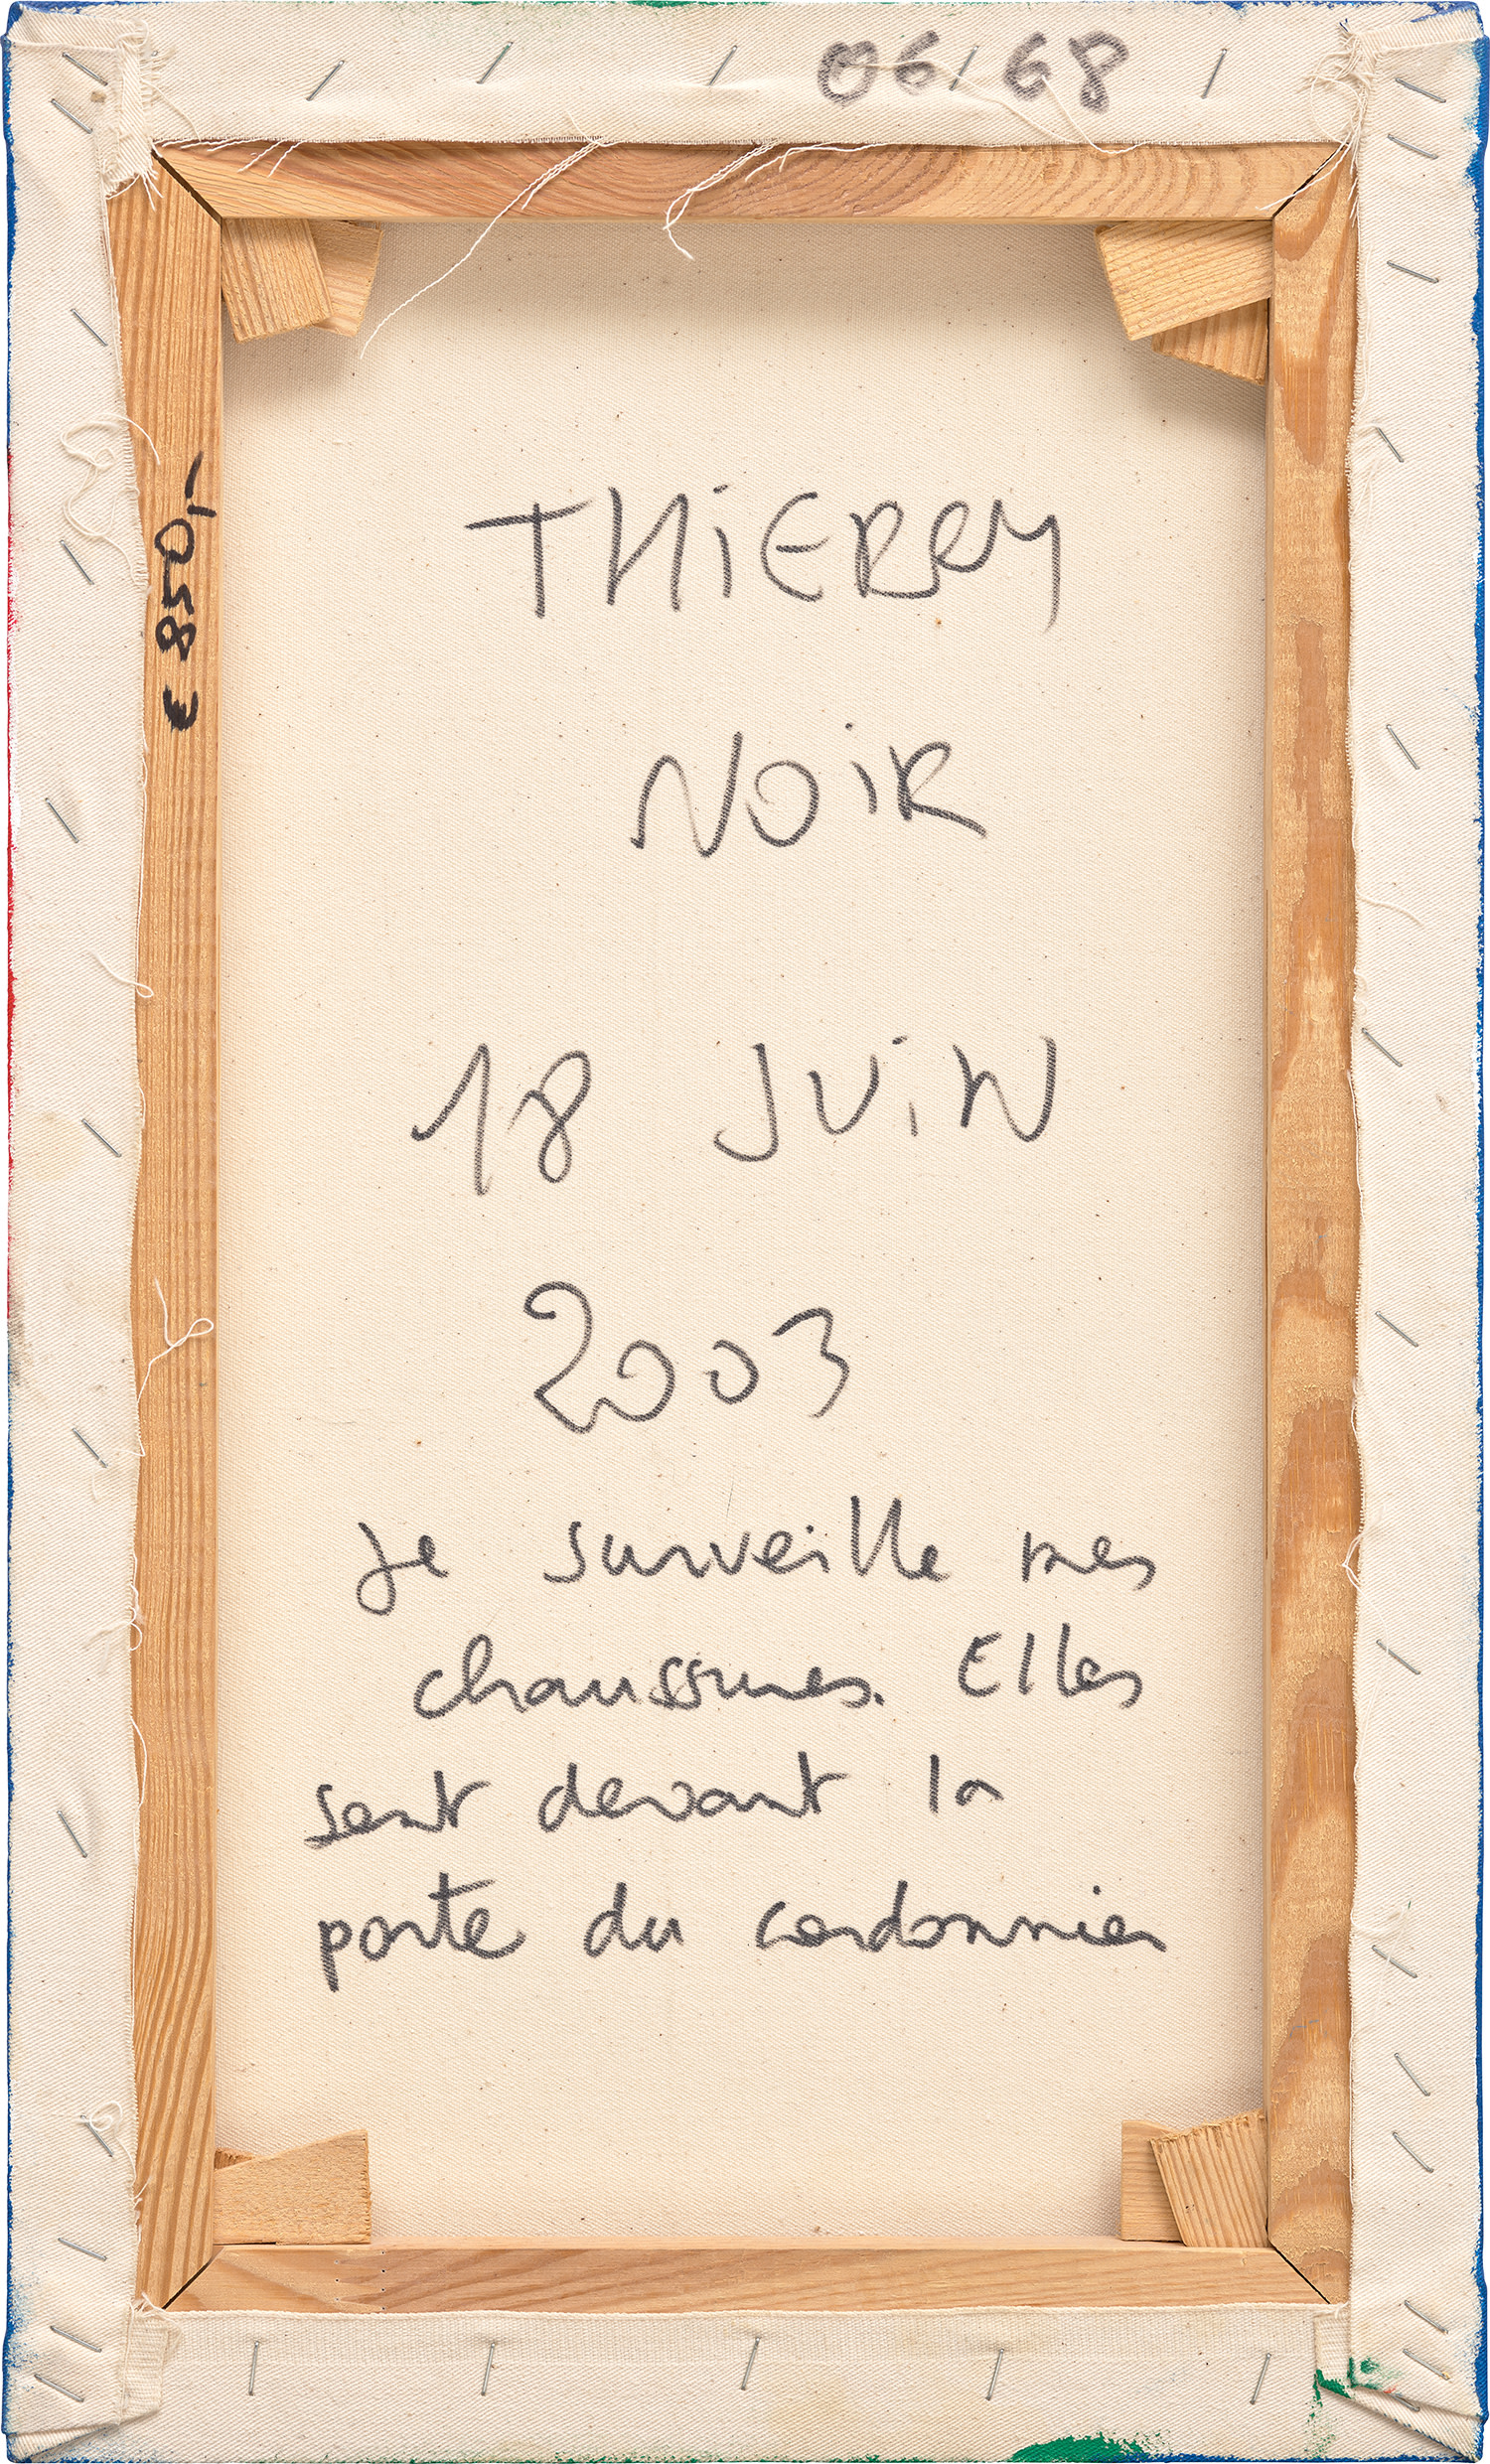 06 68
€ 850,-
THiERRY
NOiR
18 JUiN
2003
Je surveille mes
chaussures. Elles
sont devant la
porte du cordonnier